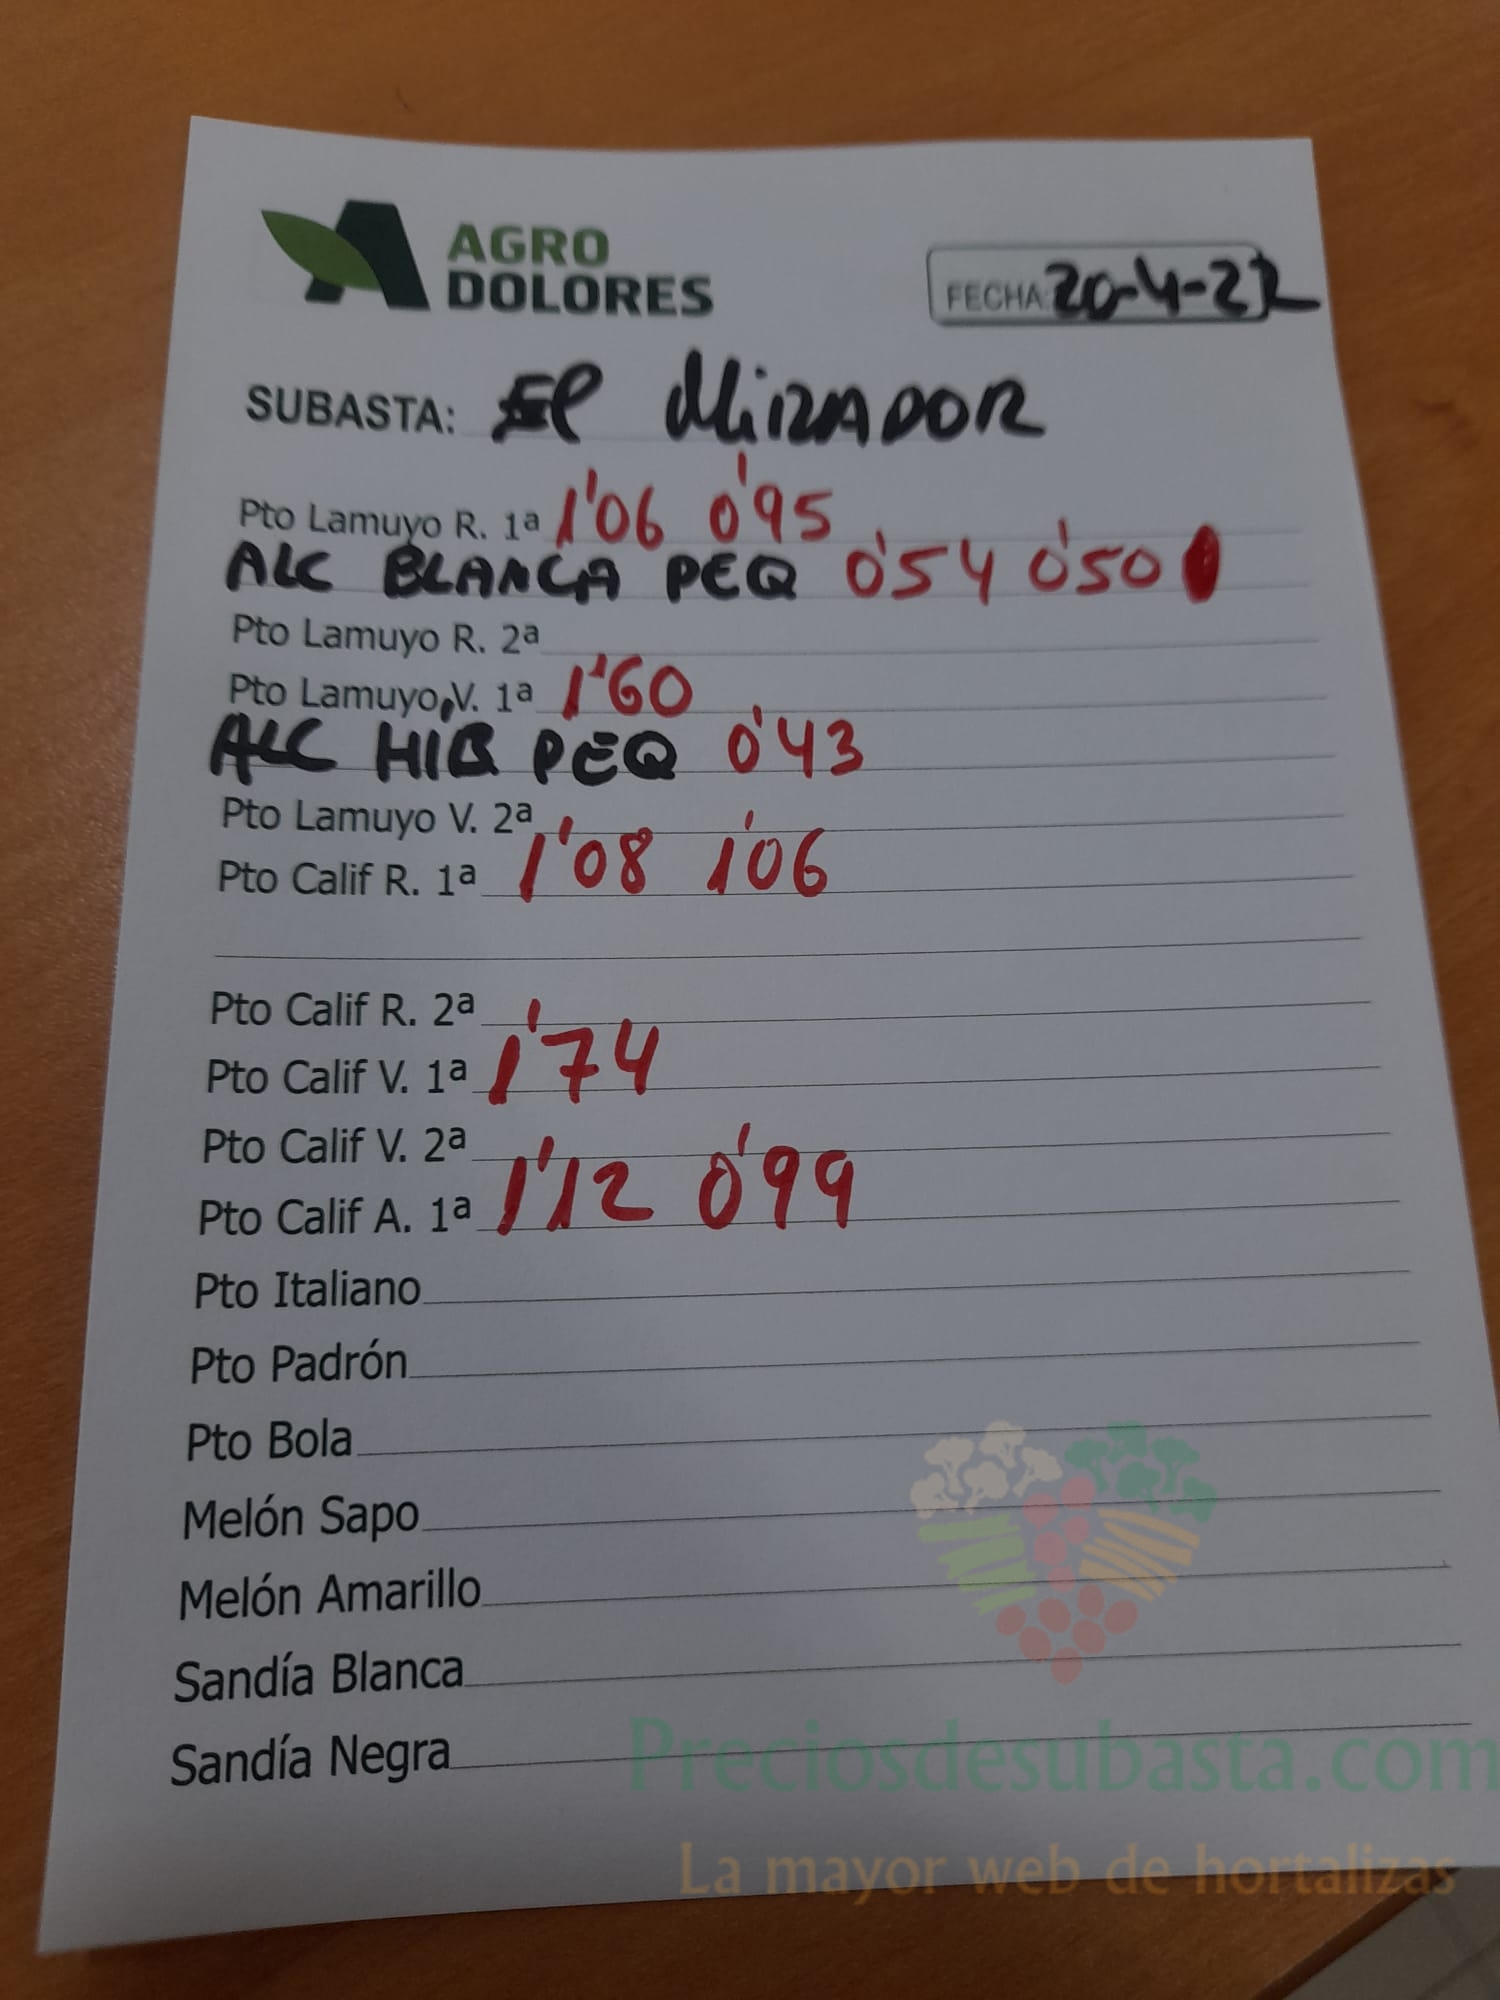 AGRO
DOLORES
FECHA: 20-4-22
SUBASTA: El MiRADOR
Pto Lamuyo R. 1ª 1'06 0'95
ALC BLANCA PEQ 0'54 0'50
Pto Lamuyo R. 2ª
Pto Lamuyo V. 1ª 1'60
ALC HIB PEQ 0'43
Pto Lamuyo V. 2ª
Pto Calif R. 1ª 1'08 1'06
Pto Calif R. 2ª
Pto Calif V. 1ª 1'74
Pto Calif V. 2ª
Pto Calif A. 1ª 1'12 0'99
Pto Italiano
Pto Padrón
Pto Bola
Melón Sapo
Melón Amarillo
Sandía Blanca
Sandía Negra
Preciosdesubasta.com
La mayor web de hortalizas